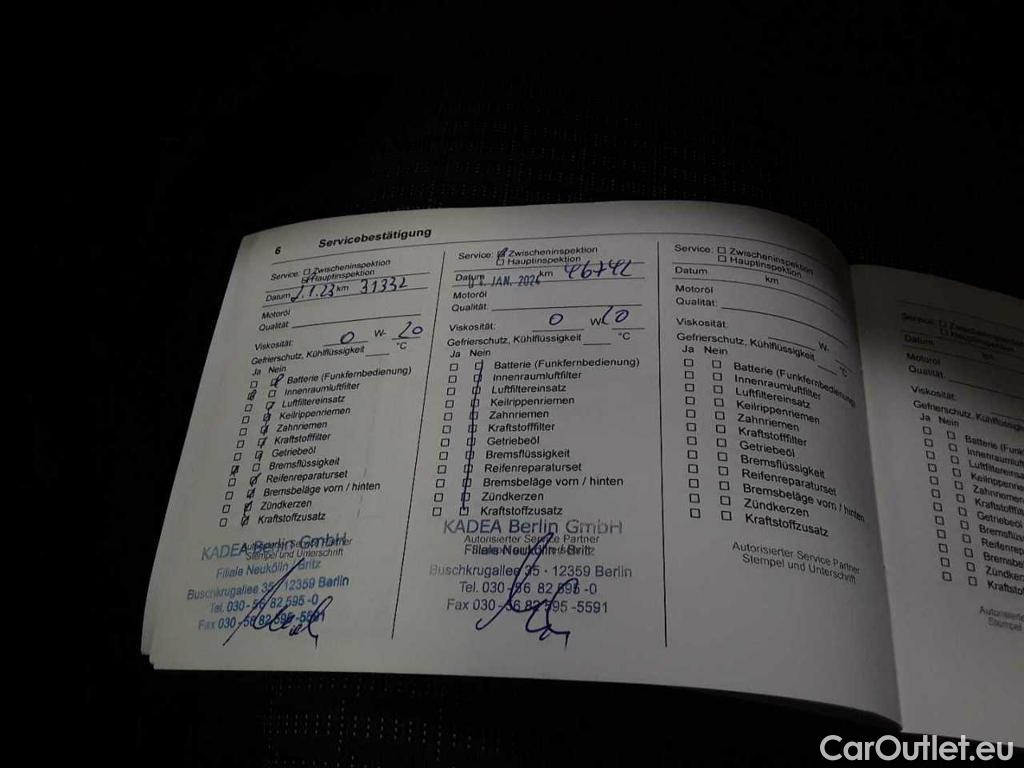 6 Servicebestätigung
Service: Zwischeninspektion
Hauptinspektion
Datum 2.1.23 km 31332
Motoröl
Qualität:
Viskosität: 0 W- 20
Gefrierschutz, Kühlflüssigkeit °C
Ja Nein
Batterie (Funkfernbedienung)
Innenraumluftfilter
Luftfiltereinsatz
Keilrippenriemen
Zahnriemen
Kraftstofffilter
Getriebeöl
Bremsflüssigkeit
Reifenreparaturset
Bremsbeläge vorn / hinten
Zündkerzen
Kraftstoffzusatz
KADEA Berlin GmbH
Stempel und Unterschrift
Filiale Neukölln / Britz
Buschkrugallee 35 · 12359 Berlin
Tel. 030 - 56 82 595 -0
Fax 030 - 56 82 595 -5591
Service: Zwischeninspektion
Hauptinspektion
Datum JAN. 2024 km 46742
Motoröl
Qualität:
Viskosität: 0 W 20
Gefrierschutz, Kühlflüssigkeit °C
Ja Nein
Batterie (Funkfernbedienung)
Innenraumluftfilter
Luftfiltereinsatz
Keilrippenriemen
Zahnriemen
Kraftstofffilter
Getriebeöl
Bremsflüssigkeit
Reifenreparaturset
Bremsbeläge vorn / hinten
Zündkerzen
Kraftstoffzusatz
KADEA Berlin GmbH
Autorisierter Service Partner
Filiale Neukölln / Britz
Buschkrugallee 35 · 12359 Berlin
Tel. 030 - 56 82 595 -0
Fax 030 - 56 82 595 -5591
Service: Zwischeninspektion
Hauptinspektion
Datum km
Motoröl
Qualität:
Viskosität: W-
Gefrierschutz, Kühlflüssigkeit °C
Ja Nein
Batterie (Funkfernbedienung)
Innenraumluftfilter
Luftfiltereinsatz
Keilrippenriemen
Zahnriemen
Kraftstofffilter
Getriebeöl
Bremsflüssigkeit
Reifenreparaturset
Bremsbeläge vorn / hinten
Zündkerzen
Kraftstoffzusatz
Autorisierter Service Partner
Stempel und Unterschrift
Service: Zwischeninspektion
Hauptinspektion
Datum km
Motoröl
Qualität:
Viskosität:
Gefrierschutz, Kühlflüssigk
Ja Nein
Batterie (Funk
Innenraumluft
Luftfiltereinsa
Keilrippenrie
Zahnriemen
Kraftstofffil
Getriebeöl
Bremsflüs
Reifenrep
Bremsbel
Zündkerz
Kraftstof
Autorisierte
Stempel
CarOutlet.eu